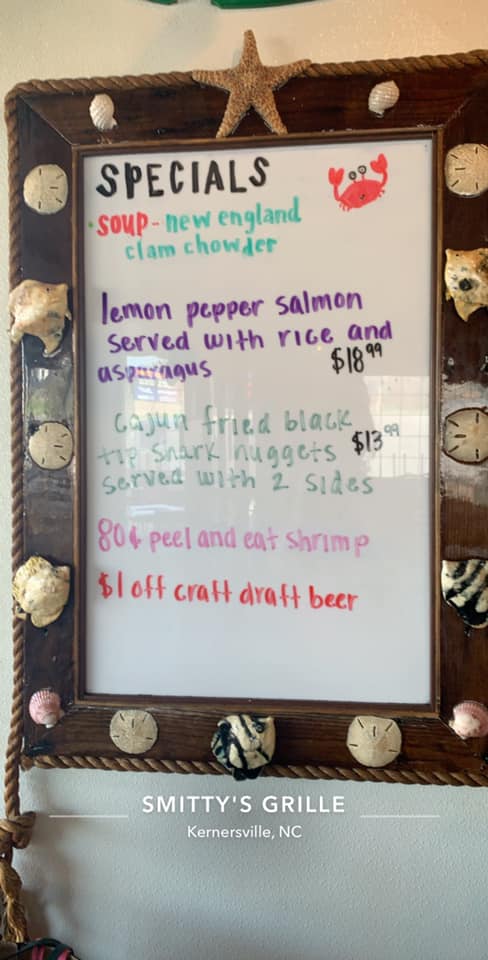 SPECIALS
soup - new england
clam chowder
lemon pepper salmon
served with rice and
asparagus $18.99
cajun fried black
tip shark nuggets $13.99
served with 2 sides
80¢ peel and eat shrimp
$1 off craft draft beer
SMITTY'S GRILLE
Kernersville, NC